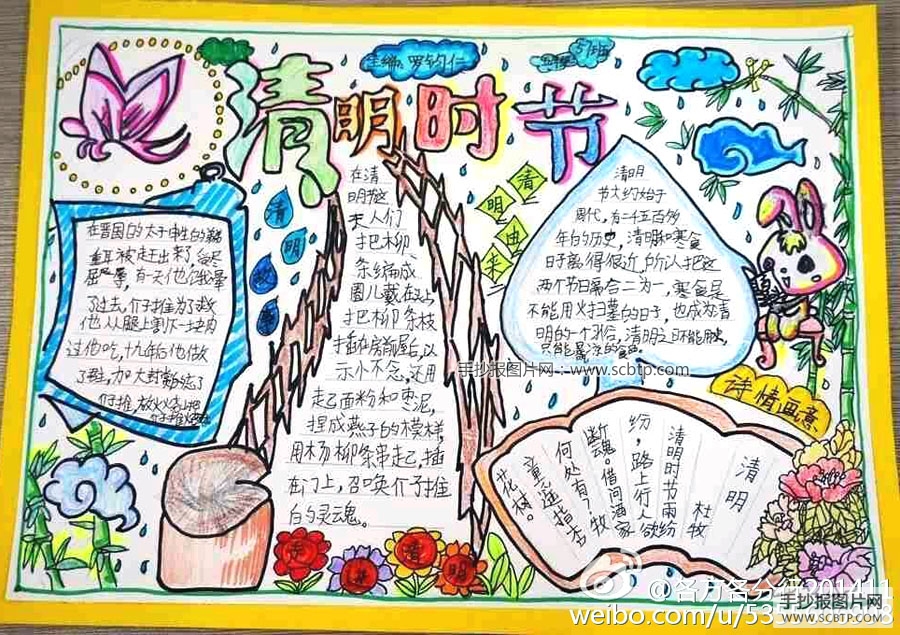 清明时节
主编：罗钧仁
五(5)班
清明故事
在晋国的太子申生的弟弟
重耳被走出来了，受尽
屈辱，有一天他饿晕
了过去，介子推为了救
他从腿上割下一块肉
过他吃，十九年后他做
了君主，加大封赏忘了
介子推，放火烧山把
在清
明节这
天人们
把柳
条编成
圈儿戴在头上
把柳条枝
插在房前屋后，以
示怀念，还用
起面粉和枣泥，
捏成燕子的模样，
用杨柳条串起，插
在门上，召唤介子推
的灵魂。
清明由来
清明
节大约始于
周代，有二千五百多
年的历史，清明和寒食
日子离得很近，所以把这
两个节日集合二为一，寒食是
不能用火扫墓的日子，也成为清
明的一个习俗，清明之日不能
只能
诗情画意
清明
杜牧
清明时节雨纷
纷，路上行人欲
断魂。借问酒家
何处有？牧
童遥指杏
花村。
清
明
手抄报图片网：www.scbtp.com
@各方各分
weibo.com/u/53
手抄报图片网
WWW.SCBTP.COM